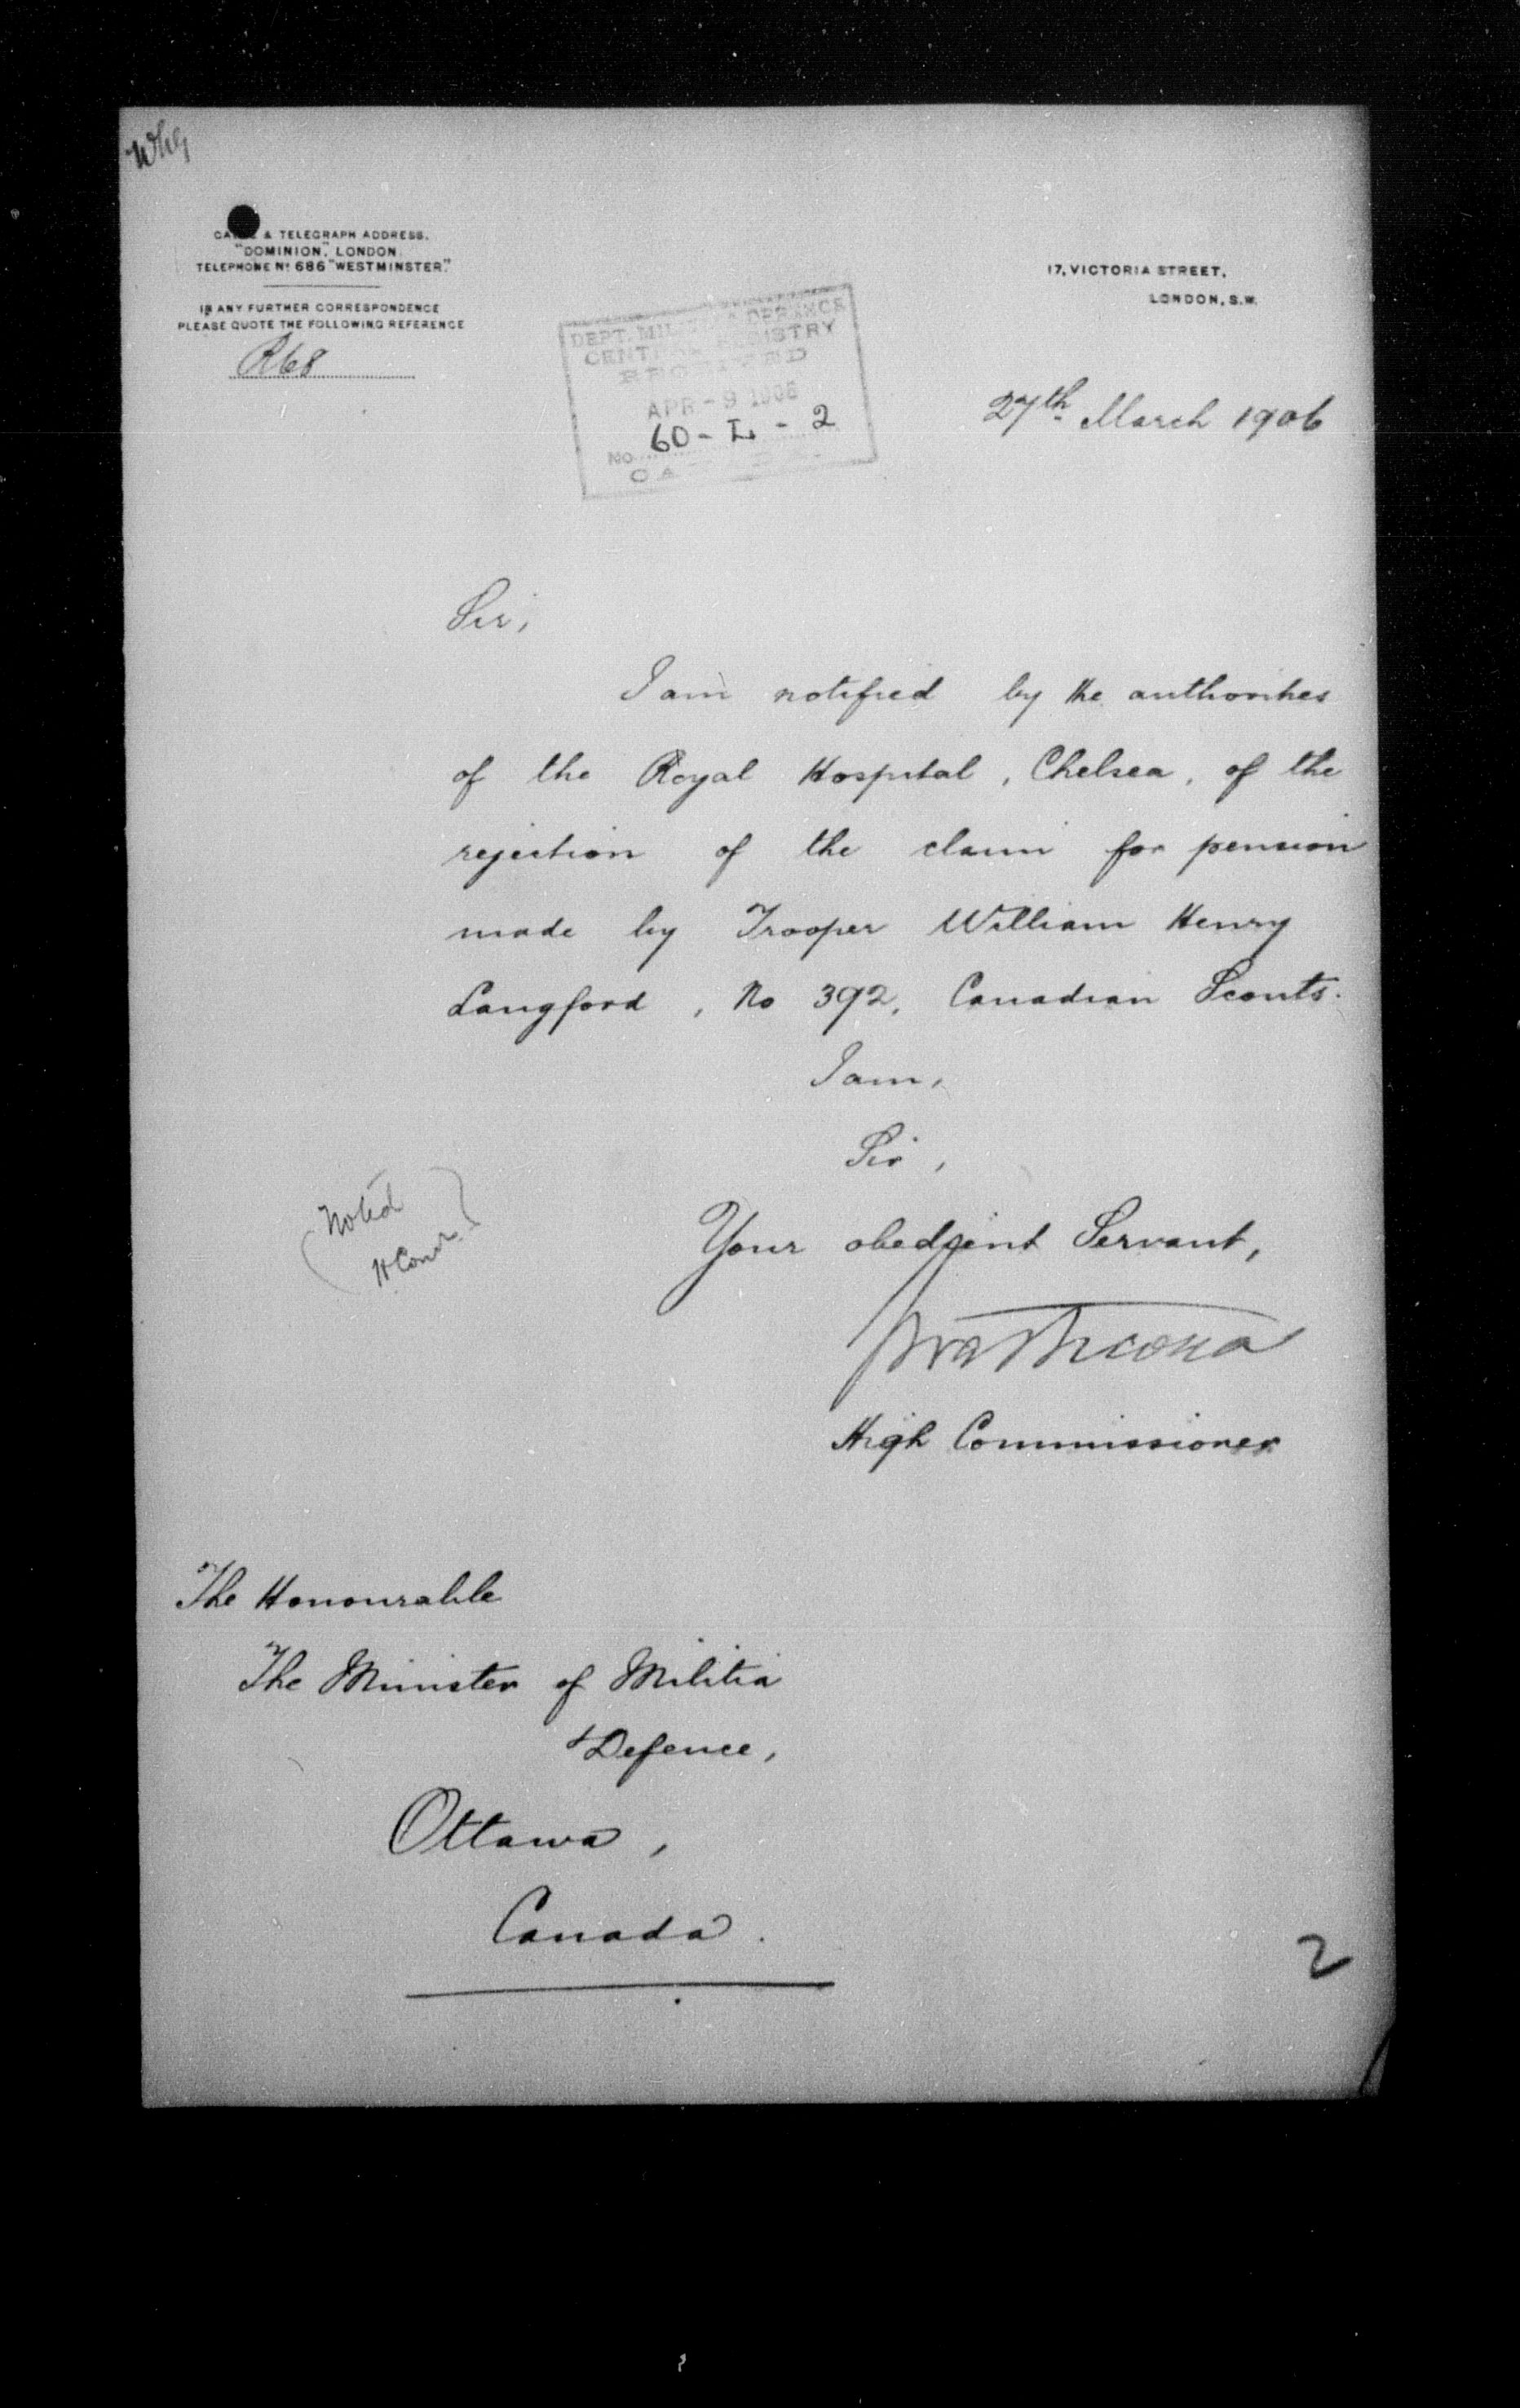 CABLE & TELEGRAPH ADDRESS,
"DOMINION," LONDON.
TELEPHONE No. 686 "WESTMINSTER."
IN ANY FURTHER CORRESPONDENCE
PLEASE QUOTE THE FOLLOWING REFERENCE
R68
17, VICTORIA STREET,
LONDON, S.W.
DEPT. MILITIA & DEFENCE
CENTRAL REGISTRY
RECEIVED
APR - 9 1906
No 60 - L - 2
27th March 1906
Sir,
I am notified by the authorities
of the Royal Hospital, Chelsea, of the
rejection of the claim for pension
made by Trooper William Henry
Langford, No 392, Canadian Scouts.
I am,
Sir,
Your obedient Servant,
Strathcona
High Commissioner
Noted
The Honourable
The Minister of Militia
& Defence,
Ottawa,
Canada.
2